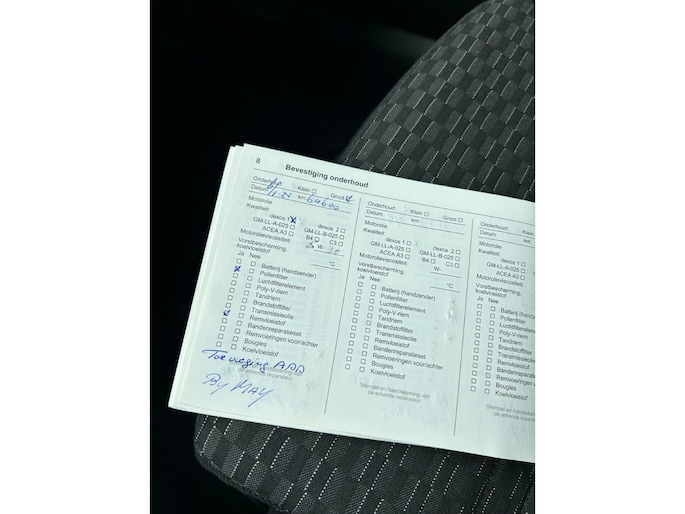 8 Bevestiging onderhoud
Onderhoud: Klein ☐ Groot
Datum km 64600
Motorolie
Kwaliteit:
dexos 1 ☒ dexos 2 ☐
GM-LL-A-025 ☐ GM-LL-B-025 ☐
ACEA A3 ☐ B4 ☐ C3 ☐
Motorolieviscositeit: W-
Vorstbescherming, °C
koelvloeistof
Ja Nee
☐ ☐ Batterij (handzender)
☒ ☐ Pollenfilter
☐ ☐ Luchtfilterelement
☐ ☐ Poly-V-riem
☐ ☐ Tandriem
☐ ☐ Brandstoffilter
☐ Transmissieolie
☐ ☐ Remvloeistof
☐ ☐ Bandenreparatieset
☐ ☐ Remvoeringen voor/achter
☐ ☐ Bougies
☐ ☐ Koelvloeistof
Toevoeging ADD
By MAY
Onderhoud: Klein ☐ Groot ☐
Datum km
Motorolie
Kwaliteit:
dexos 1 ☐ dexos 2 ☐
GM-LL-A-025 ☐ GM-LL-B-025 ☐
ACEA A3 ☐ B4 ☐ C3 ☐
Motorolieviscositeit: W-
Vorstbescherming, °C
koelvloeistof
Ja Nee
☐ ☐ Batterij (handzender)
☐ ☐ Pollenfilter
☐ ☐ Luchtfilterelement
☐ ☐ Poly-V-riem
☐ ☐ Tandriem
☐ ☐ Brandstoffilter
☐ ☐ Transmissieolie
☐ ☐ Remvloeistof
☐ ☐ Bandenreparatieset
☐ ☐ Remvoeringen voor/achter
☐ ☐ Bougies
☐ ☐ Koelvloeistof
Stempel en handtekening van
de erkende reparateur
Onderhoud: Klein
Datum km
Motorolie
Kwaliteit:
dexos 1 ☐
GM-LL-A-025 ☐
ACEA A3 ☐
Motorolieviscositeit:
Vorstbescherming,
koelvloeistof
Ja Nee
☐ ☐ Batterij
☐ ☐ Pollenfilter
☐ ☐
☐ ☐ Poly-V-riem
☐ ☐ Tandriem
☐ ☐ Brandstoffilter
☐ ☐
☐ ☐ Remvloeistof
☐ ☐
☐ ☐ Remvoeringen
☐ ☐ Bougies
☐ ☐ Koelvloeistof
Stempel en
de erkende